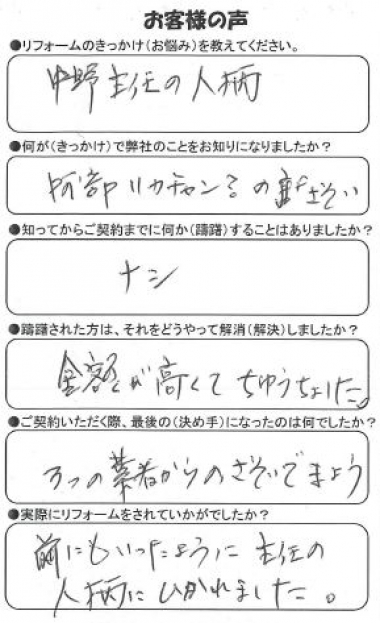 お客様の声
●リフォームのきっかけ(お悩み)を教えてください。
中野主任の人柄
●何が(きっかけ)で弊社のことをお知りになりましたか?
阿部リカチャン の さそい
●知ってからご契約までに何か(躊躇)することはありましたか?
ナシ
●躊躇された方は、それをどうやって解消(解決)しましたか?
金額が高くてちゅうちょした。
●ご契約いただく際、最後の(決め手)になったのは何でしたか?
3つの業者からのさそいでまよう
●実際にリフォームをされていかがでしたか?
前にもいったように主任の
人柄にひかれました。